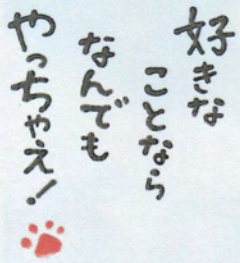 好きな
ことなら
なんでも
やっちゃえ!